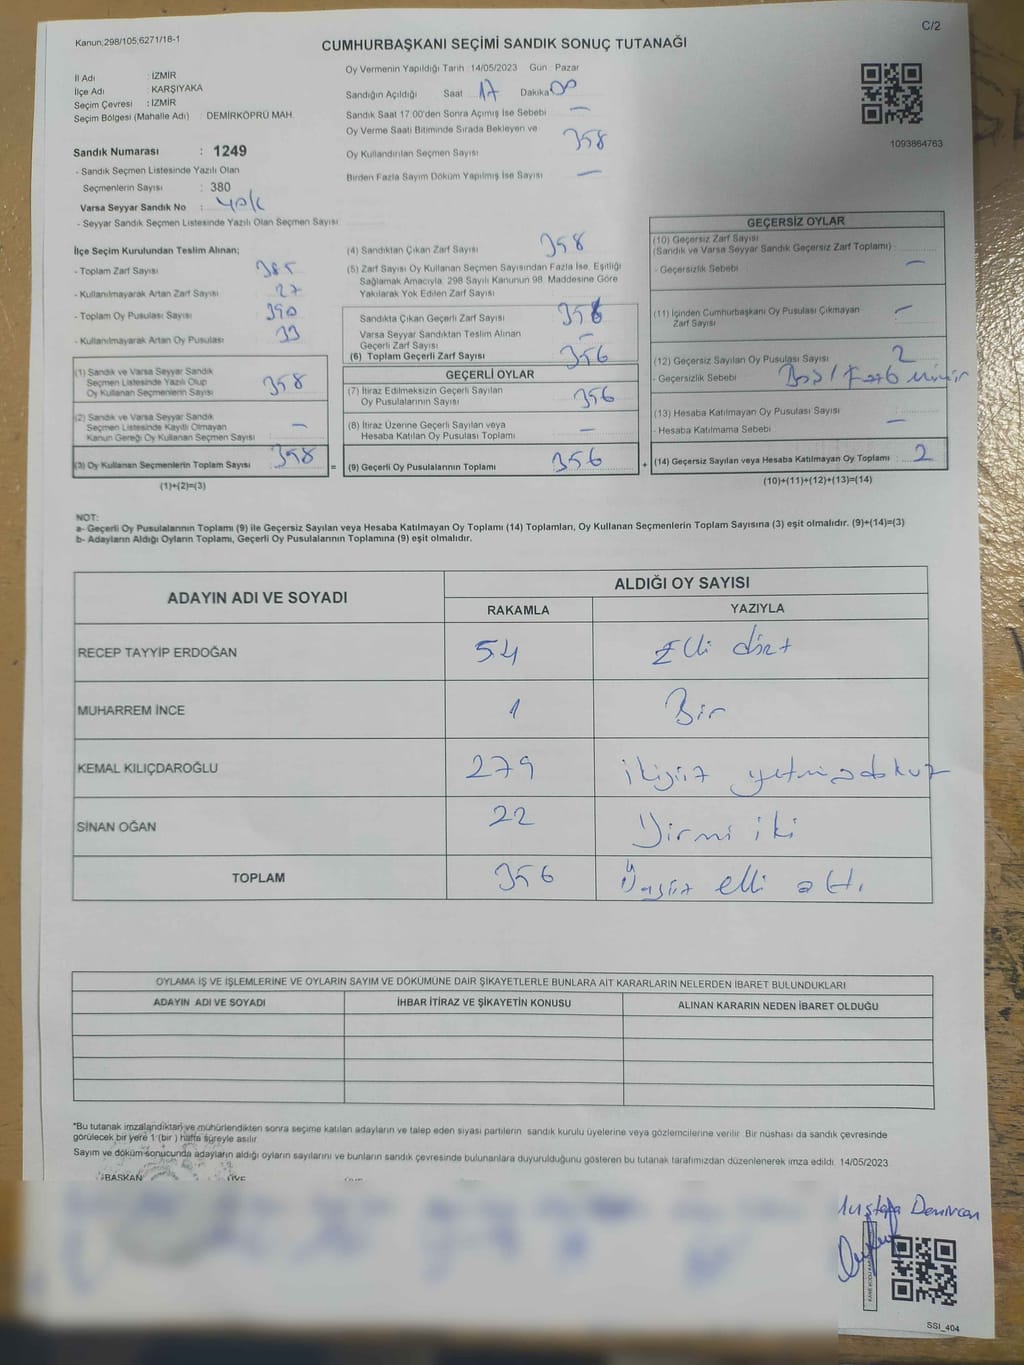 Kanun;298/105;6271/18-1
C/2
CUMHURBAŞKANI SEÇİMİ SANDIK SONUÇ TUTANAĞI
İl Adı : İZMİR
İlçe Adı : KARŞIYAKA
Seçim Çevresi : İZMİR
Seçim Bölgesi (Mahalle Adı) : DEMİRKÖPRÜ MAH.
Sandık Numarası : 1249
- Sandık Seçmen Listesinde Yazılı Olan
Seçmenlerin Sayısı : 380
Varsa Seyyar Sandık No : Yok
- Seyyar Sandık Seçmen Listesinde Yazılı Olan Seçmen Sayısı
Oy Vermenin Yapıldığı Tarih :14/05/2023 Gün : Pazar
Sandığın Açıldığı Saat 17 Dakika 00
Sandık Saat 17:00'den Sonra Açımış İse Sebebi —
Oy Verme Saati Bitiminde Sırada Bekleyen ve
Oy Kullandırılan Seçmen Sayısı 358
Birden Fazla Sayım Döküm Yapılmış İse Sayısı —
1093864763
İlçe Seçim Kurulundan Teslim Alınan;
- Toplam Zarf Sayısı 385
- Kullanılmayarak Artan Zarf Sayısı 27
- Toplam Oy Pusulası Sayısı 390
- Kullanılmayarak Artan Oy Pusulası 33
(1) Sandık ve Varsa Seyyar Sandık
Seçmen Listesinde Yazılı Olup
Oy Kullanan Seçmenlerin Sayısı 358
(2) Sandık ve Varsa Seyyar Sandık
Seçmen Listesinde Kayıtlı Olmayan
Kanun Gereği Oy Kullanan Seçmen Sayısı —
(3) Oy Kullanan Seçmenlerin Toplam Sayısı 358 =
(1)+(2)=(3)
(4) Sandıktan Çıkan Zarf Sayısı 358
(5) Zarf Sayısı Oy Kullanan Seçmen Sayısından Fazla İse, Eşitliği
Sağlamak Amacıyla, 298 Sayılı Kanunun 98. Maddesine Göre
Yakılarak Yok Edilen Zarf Sayısı :
Sandıkta Çıkan Geçerli Zarf Sayısı
Varsa Seyyar Sandıktan Teslim Alınan
Geçerli Zarf Sayısı —
(6) Toplam Geçerli Zarf Sayısı 356
GEÇERLİ OYLAR
(7) İtiraz Edilmeksizin Geçerli Sayılan
Oy Pusulalarının Sayısı 356
(8) İtiraz Üzerine Geçerli Sayılan veya
Hesaba Katılan Oy Pusulası Toplamı —
(9) Geçerli Oy Pusulalarının Toplamı 356 +
GEÇERSİZ OYLAR
(10) Geçersiz Zarf Sayısı
(Sandık ve Varsa Seyyar Sandık Geçersiz Zarf Toplamı)
- Geçersizlik Sebebi —
(11) İçinden Cumhurbaşkanı Oy Pusulası Çıkmayan
Zarf Sayısı —
(12) Geçersiz Sayılan Oy Pusulası Sayısı 2
- Geçersizlik Sebebi
(13) Hesaba Katılmayan Oy Pusulası Sayısı
- Hesaba Katılmama Sebebi —
(14) Geçersiz Sayılan veya Hesaba Katılmayan Oy Toplamı : 2
(10)+(11)+(12)+(13)=(14)
NOT:
a- Geçerli Oy Pusulalarının Toplamı (9) ile Geçersiz Sayılan veya Hesaba Katılmayan Oy Toplamı (14) Toplamları, Oy Kullanan Seçmenlerin Toplam Sayısına (3) eşit olmalıdır. (9)+(14)=(3)
b- Adayların Aldığı Oyların Toplamı, Geçerli Oy Pusulalarının Toplamına (9) eşit olmalıdır.
ADAYIN ADI VE SOYADI
ALDIĞI OY SAYISI
RAKAMLA YAZIYLA
RECEP TAYYİP ERDOĞAN 54 Elli dört
MUHARREM İNCE 1 Bir
KEMAL KILIÇDAROĞLU 279 ikiyüz yetmişdokuz
SİNAN OĞAN 22 Yirmi iki
TOPLAM 356 Üçyüz elli altı
OYLAMA İŞ VE İŞLEMLERİNE VE OYLARIN SAYIM VE DÖKÜMÜNE DAİR ŞİKAYETLERLE BUNLARA AİT KARARLARIN NELERDEN İBARET BULUNDUKLARI
ADAYIN ADI VE SOYADI İHBAR İTİRAZ VE ŞİKAYETİN KONUSU ALINAN KARARIN NEDEN İBARET OLDUĞU
*Bu tutanak imzalandıktan ve mühürlendikten sonra seçime katılan adayların ve talep eden siyasi partilerin sandık kurulu üyelerine veya gözlemcilerine verilir. Bir nüshası da sandık çevresinde
görülecek bir yere 1 (bir ) hafta süreyle asılır.
Sayım ve döküm sonucunda adayların aldığı oyların sayılarını ve bunların sandık çevresinde bulunanlara duyurulduğunu gösteren bu tutanak tarafımızdan düzenlenerek imza edildi. 14/05/2023
BAŞKAN ÜYE
Mustafa Demircan
SSI_404